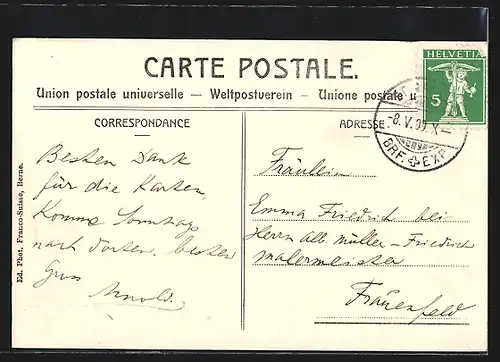 CARTE POSTALE.
Union postale universelle — Weltpostverein — Unione postale u
HELVETIA
5
-8.V.09.X-
BRF. EXP.
CORRESPONDANCE
ADRESSE
Besten Dank
für die Karten,
Komme Sonntag
nach dorten. besten
Gruss
Arnold.
Fräulein
Emma Friedrich bei
Herrn Alb. Müller-Friedrich
Malermeister
Frauenfeld
Ed. Phot. Franco-Suisse, Berne.